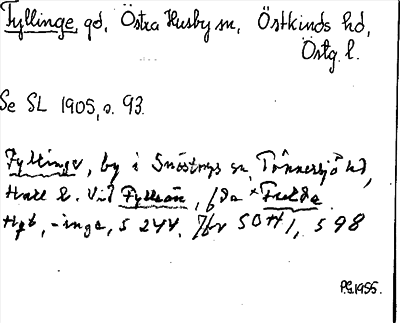 Fyllinge, gd, Östra Husby sn, Östkinds hd,
Östg. l.
Se SL 1905, s. 93.
Fyllinge, by i Snöstorps sn, Tönnersjö hd,
Hall. l. Vid Fyllean, f da *Fulda.
Hpt, -inge, s 244. Jfr SOH 1, s 98
P.G. 1955.